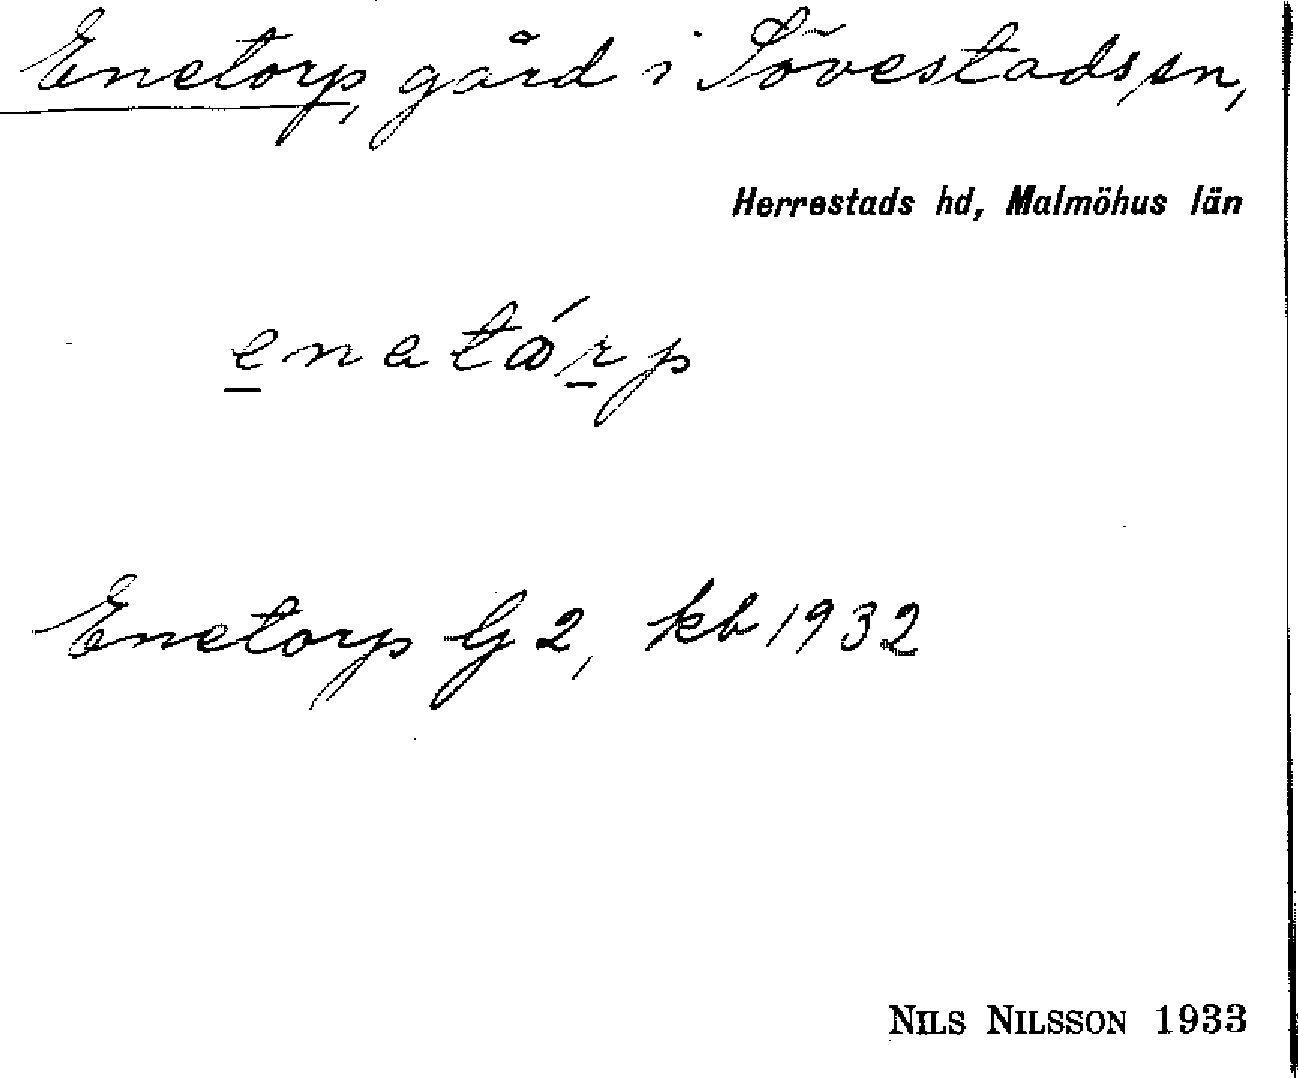 Enetorp, gård i Sövestads sn,
Herrestads hd, Malmöhus län
enatårp
Enetorp G 2, kb 1932
NILS NILSSON 1933